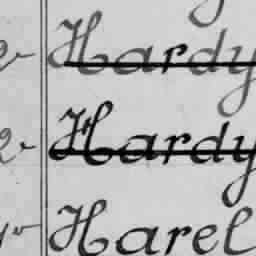 Hardy
Hardy
Harel